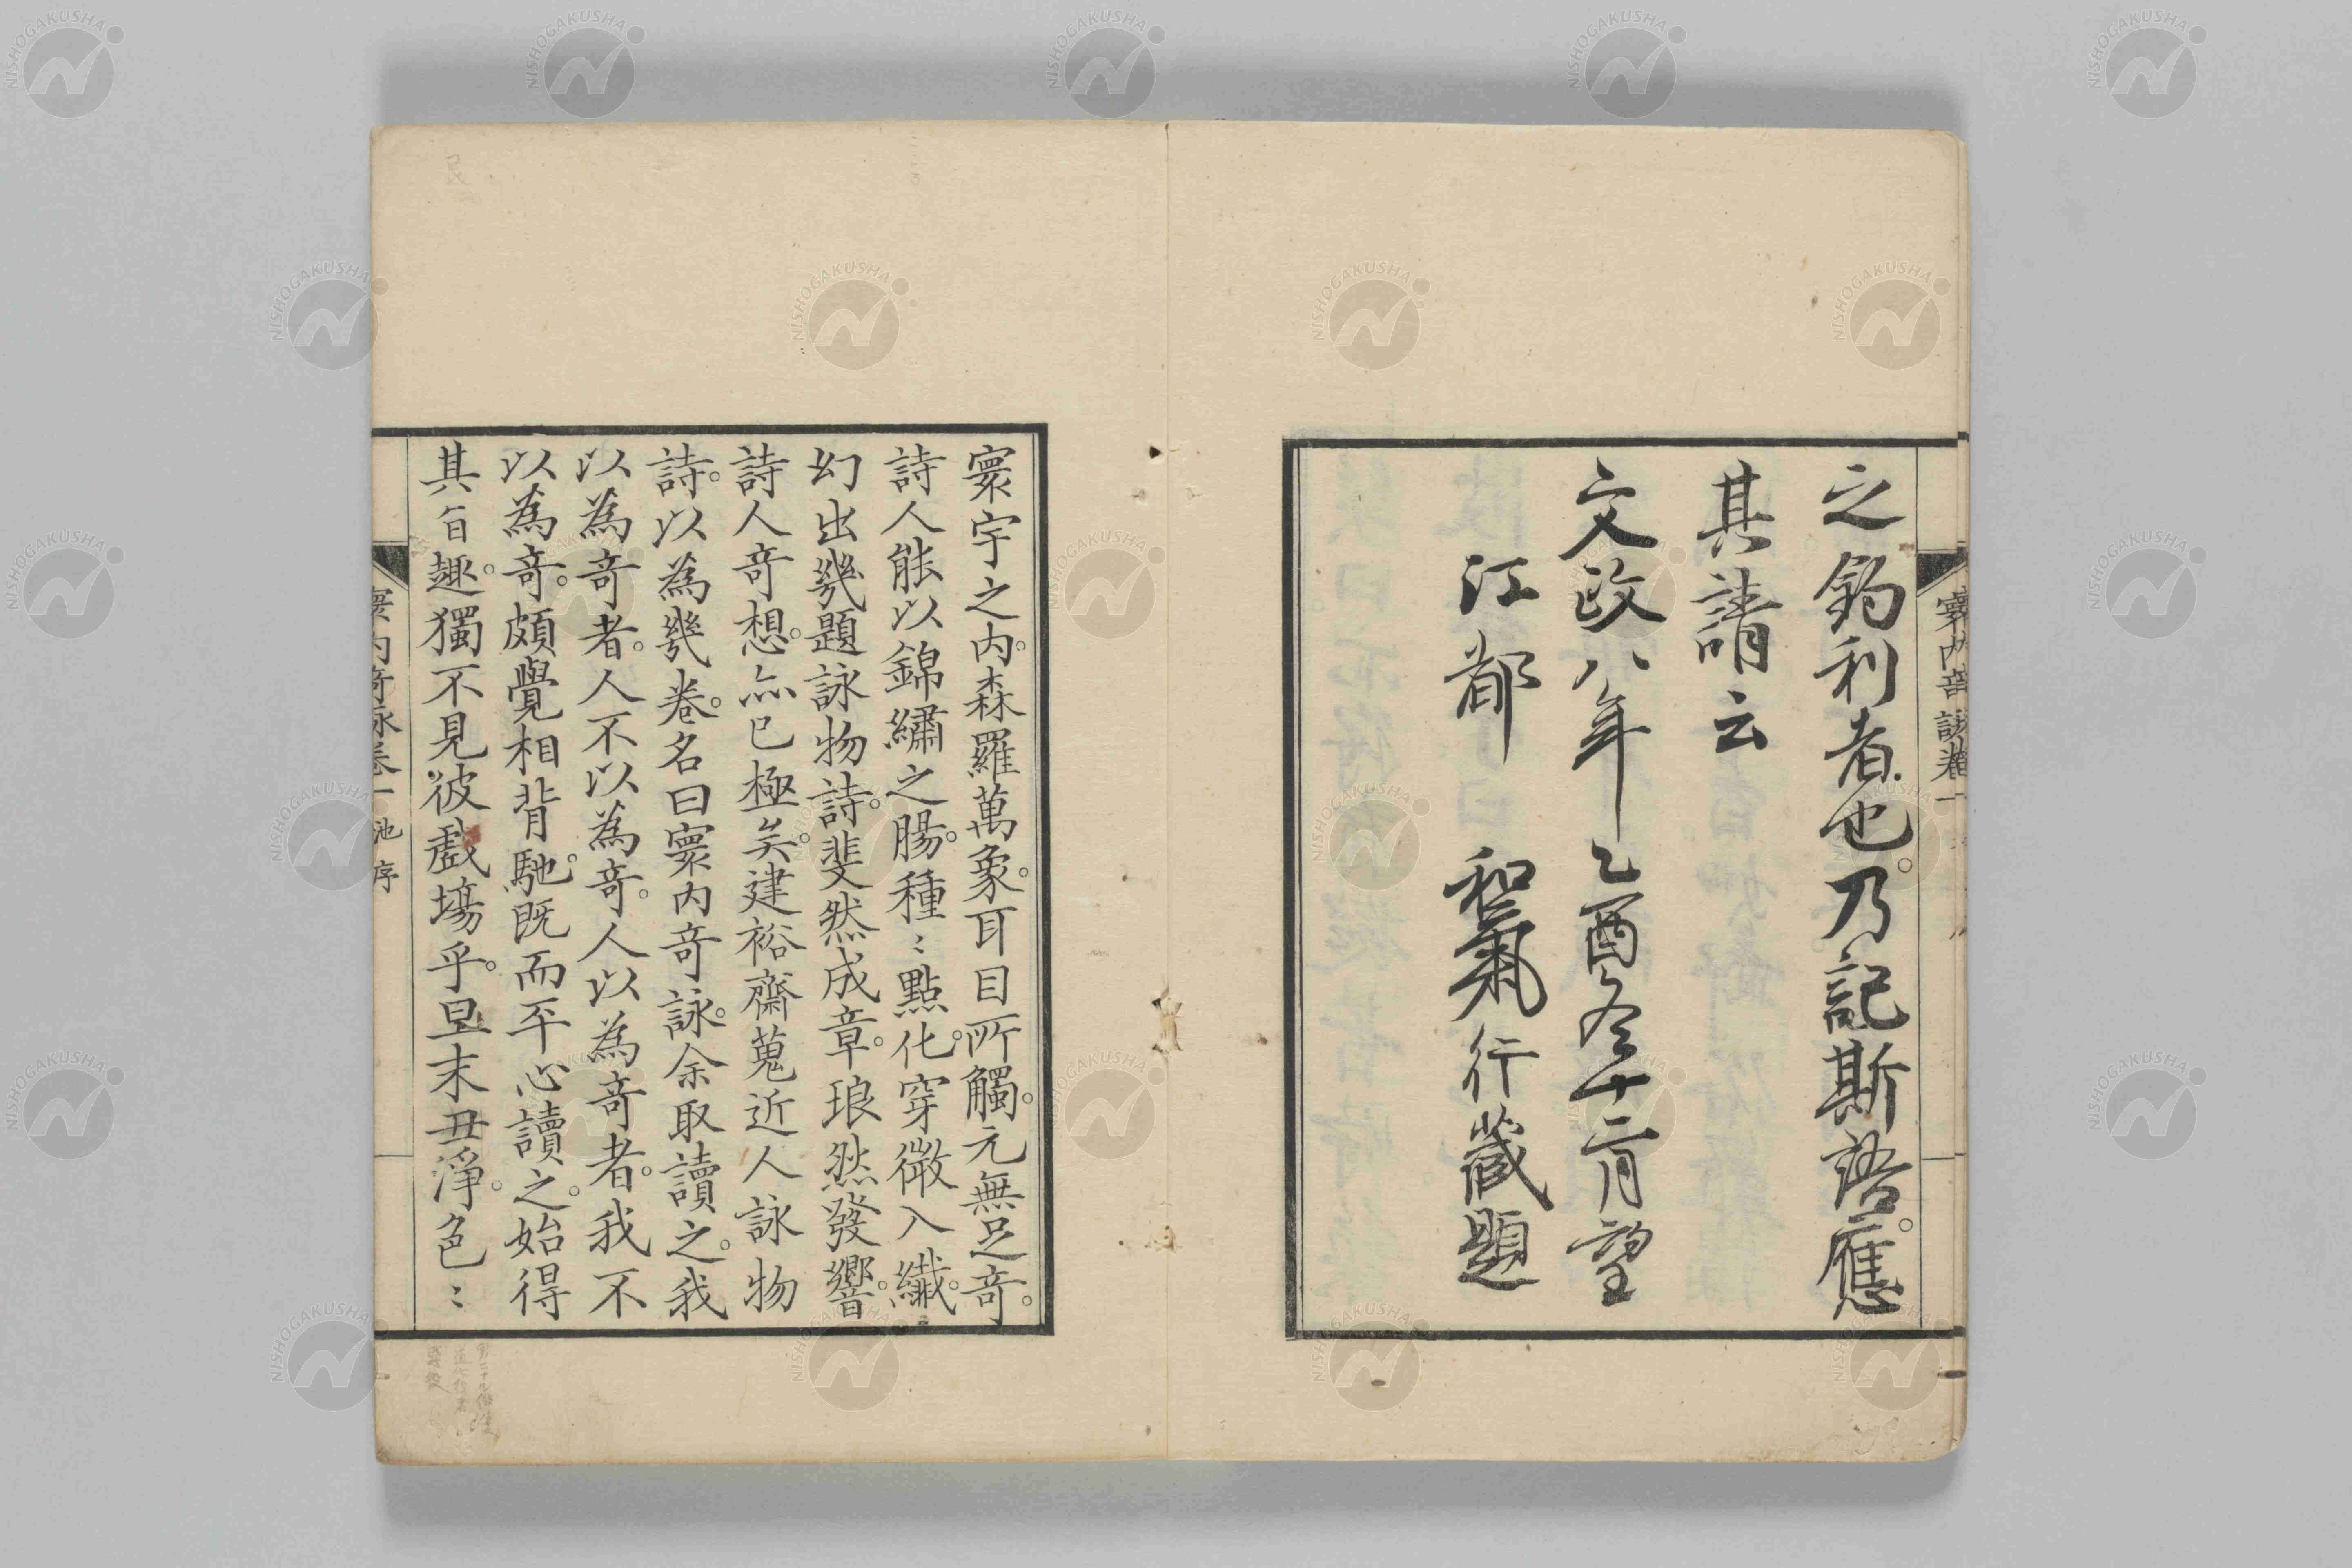 之釣利者也。乃記斯語。應
其請云
文政八年乙酉冬十二月望
江都 和氣行藏題
寰宇之内。森羅萬象。耳目所觸。元無足奇。
詩人能以錦繡之腸。種〻點化。穿微入纖。
幻出幾題詠物詩。斐然成章。琅然發響。
詩人奇想。亦已極矣。建裕齋蒐近人詠物
詩。以為幾卷。名曰寰内奇詠。余取讀之。我
以為奇者。人不以為奇。人以為奇者。我不
以為奇。頗覺相背馳。既而平心讀之。始得
其旨趣。獨不見彼戲場乎。旦末丑淨。色〻
寰内奇詠卷一 池序